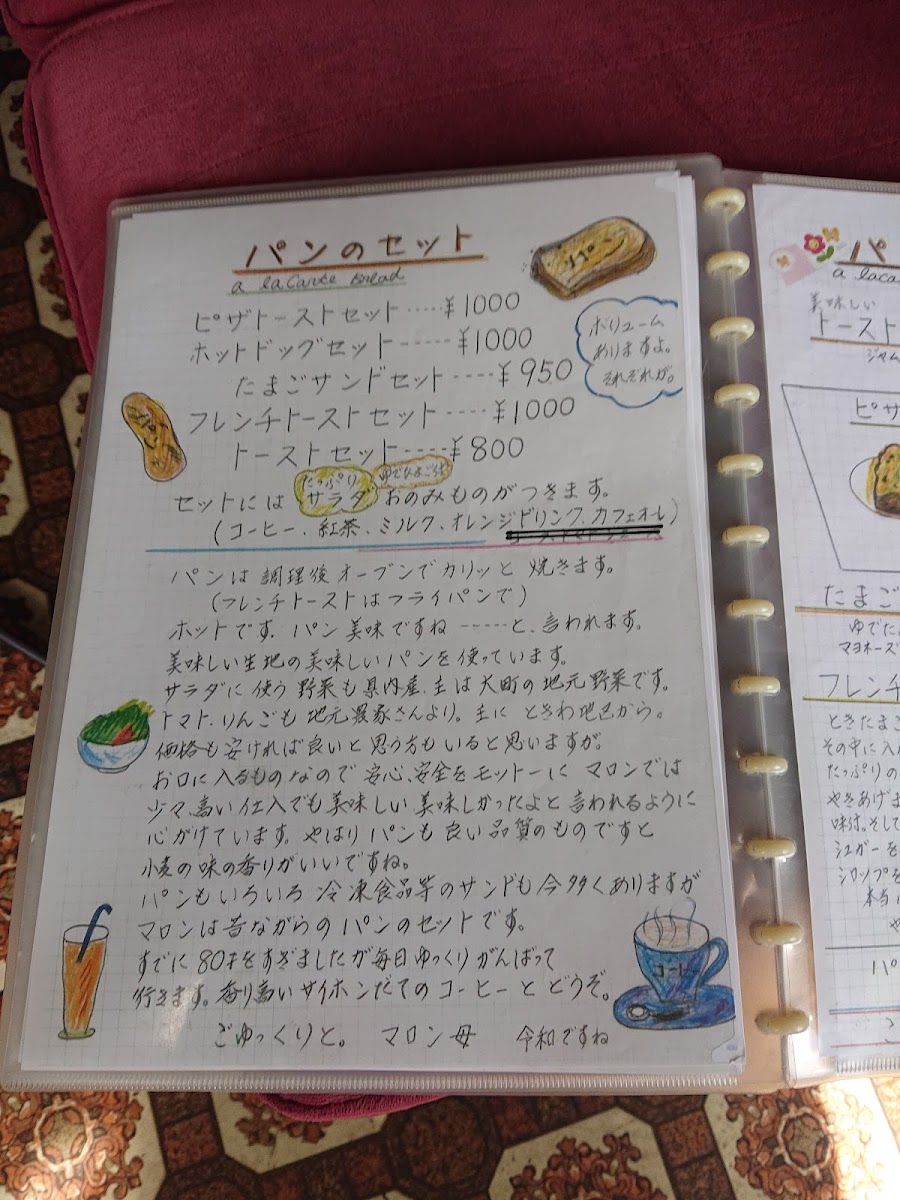 パンのセット
a la Carte Bread
パン
ピザトーストセット ‥‥¥1000
ホットドッグセット -----¥1000
たまごサンドセット ----¥950
フレンチトーストセット ----¥1000
トーストセット----¥800
ボリューム
ありますよ。
それぞれが。
パン
たっぷり ゆでたまご付
セットには サラダ おのみものがつきます。
(コーヒー、紅茶、ミルク、オレンジドリンク、カフェオーレ)
パンは調理後オーブンでカリッと 焼きます。
(フレンチトーストはフライパンで)
ホットです。パン美味ですね -----と、言われます。
美味しい生地の美味しいパンを使っています。
サラダに使う野菜も県内産、主は大町の地元野菜です。
トマト、りんごも 地元農家さんより。主に ときわ地区から。
価格も安ければ良いと思う方もいると思いますが。
お口に入るものなので 安心、安全をモットーに マロンでは
少々高い仕入でも美味しい美味しかったよと言われるように
心がけています。やはりパンも良い品質のものですと
小麦の味の香りがいいですね。
パンもいろいろ 冷凍食品等のサンドも今多くありますが
マロンは昔ながらのパンのセットです。
すでに80才をすぎましたが毎日ゆっくりがんばって
行きます。香り高いサイホンだてのコーヒーとどうぞ。
ごゆっくりと。 マロン母 令和ですね
コーヒー
パ
a laca
美味しい
トースト
ジャム
ピザ
たまご
ゆでた
マヨネーズ
フレンチ
ときたまご
その中に入
たっぷりの
やきあげま
味は。そして
シュガーを
シロップを
本当
や
パ